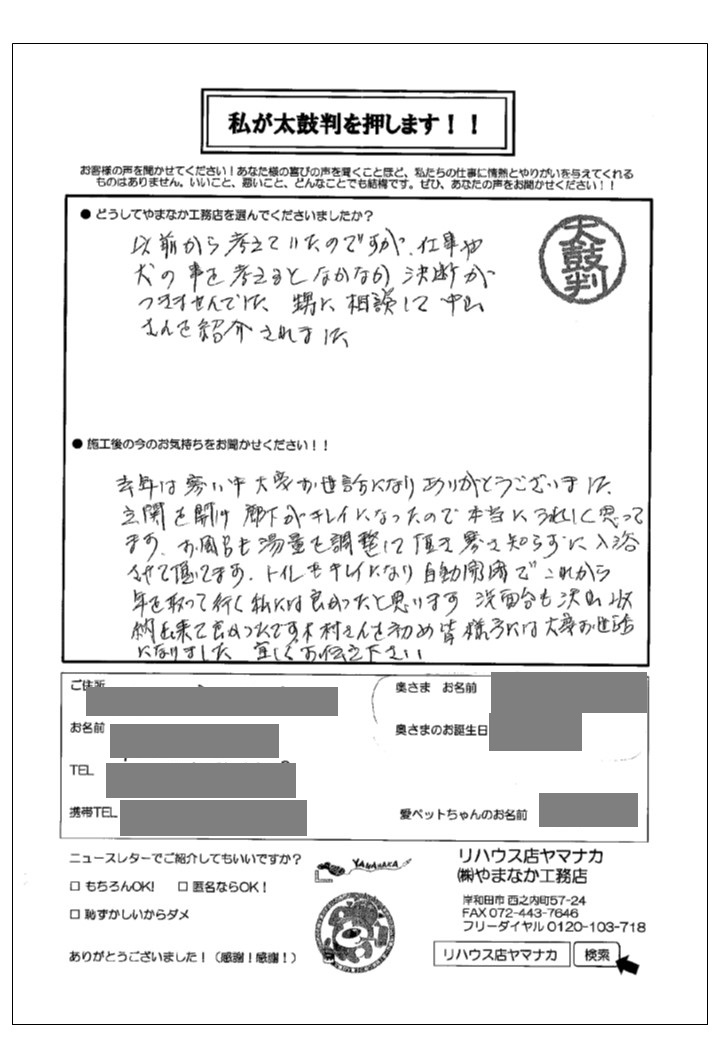 私が太鼓判を押します！！
お客様の声を聞かせてください！あなた様の喜びの声を聞くことほど、私たちの仕事に情熱とやりがいを与えてくれる
ものはありません。いいこと、悪いこと、どんなことでも結構です。ぜひ、あなたの声をお聞かせください！！
● どうしてやまなか工務店を選んでくださいましたか？
太鼓判
以前から考えていたのですが、仕事や
犬の事を考えるとなかなか決断が
つきませんでした 甥に相談して中山
さんを紹介されました
● 施工後の今のお気持ちをお聞かせください！！
去年は寒い中大変お世話になりありがとうございました
玄関を開け廊下がキレイになったので本当にうれしく思って
ます。お風呂も湯量を調整して頂き寒さ知らずに入浴
させて頂いてます。トイレもキレイになり自動開閉でこれから
年を取って行く私には良かったと思います 洗面台も沢山収
納出来て良かったです木村さんを初め皆様方には大変お世話
になりました 宜しくお伝え下さい
ご住所
奥さま お名前
お名前
奥さまのお誕生日
TEL
携帯TEL
愛ペットちゃんのお名前
ニュースレターでご紹介してもいいですか？
□ もちろんOK! □ 匿名ならOK！
□ 恥ずかしいからダメ
ありがとうございました！（感謝！感謝！）
YAMANAKA
リハウス店ヤマナカ
㈱やまなか工務店
岸和田市 西之内町57-24
FAX 072-443-7646
フリーダイヤル 0120-103-718
リハウス店ヤマナカ 検索